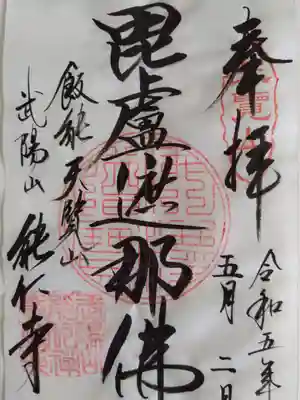 奉拝
令和五年
五月二日
毘盧遮那佛
飯能天覧山
武陽山能仁寺